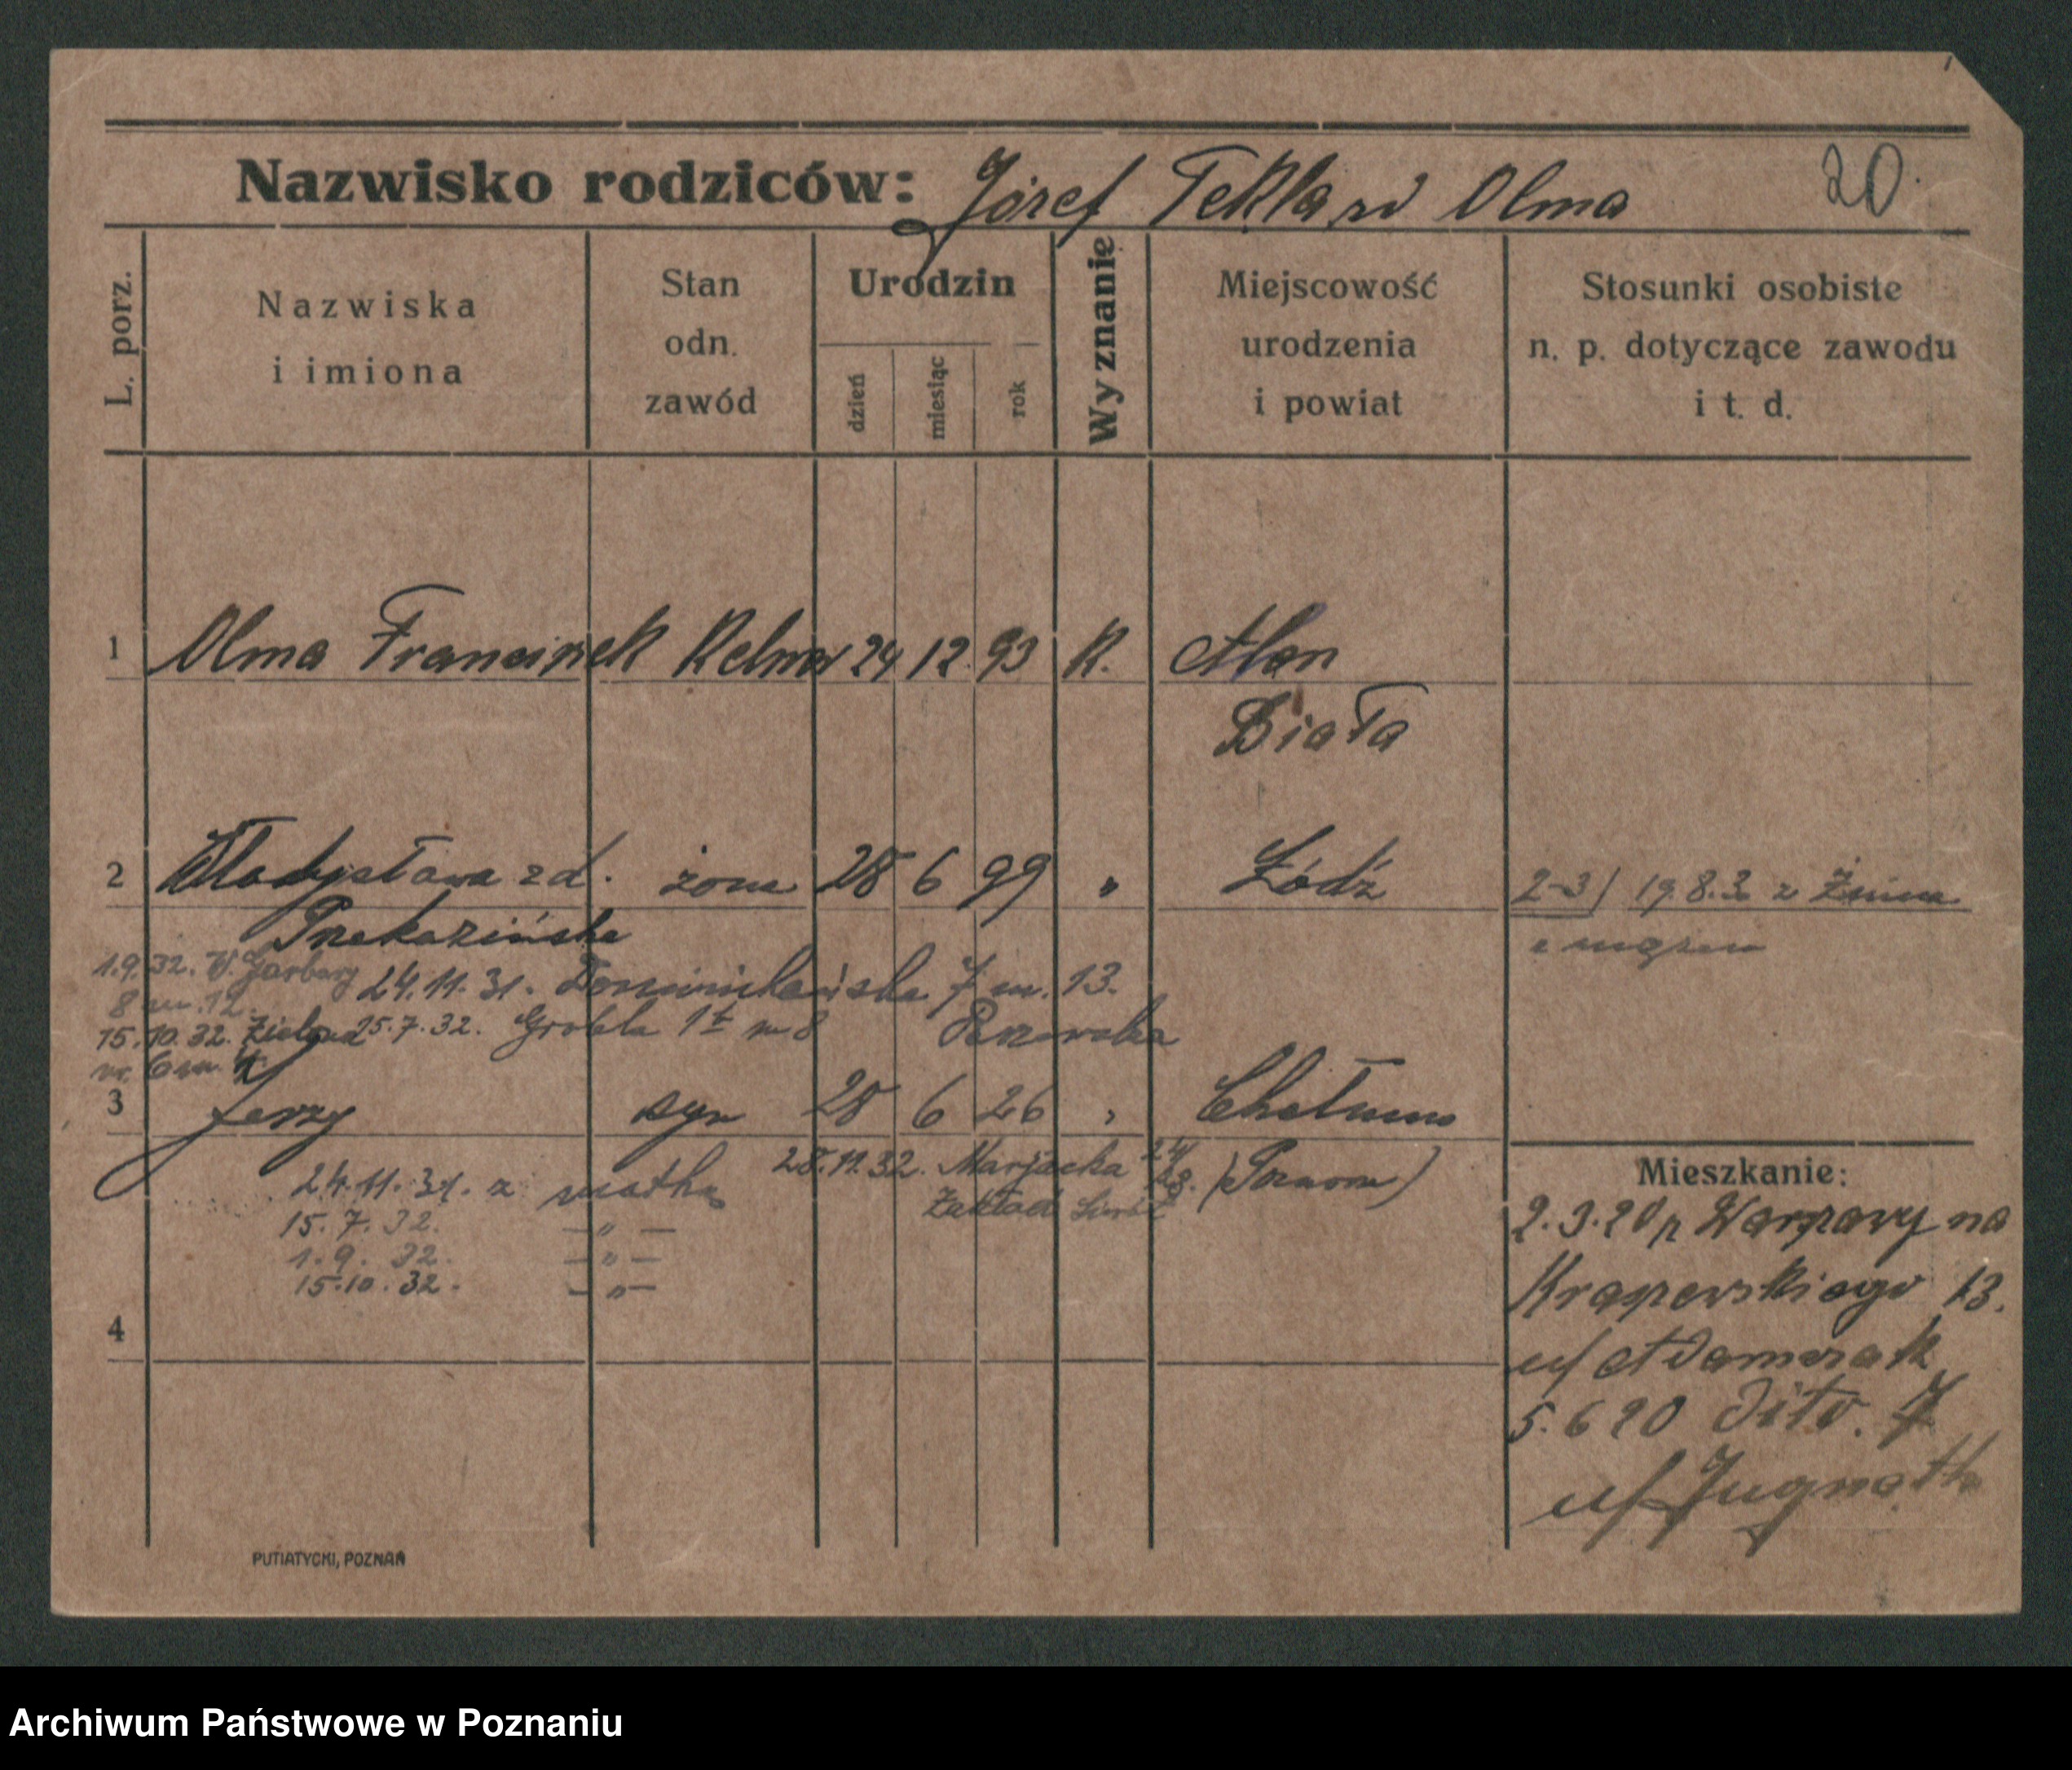 Nazwisko rodziców: Józef Tekla zd Olma 20.
L. porz.
Nazwiska i imiona
Stan odn. zawód
Urodzin
dzień
miesiąc
rok
Wyznanie
Miejscowość urodzenia i powiat
Stosunki osobiste n. p. dotyczące zawodu i t. d.
1 Olma Franciszek Kelner 24 12. 93 K.
Biała
2 Władysława zd. żona 28 6 99 " Łódź 2-3) 19.8.32 z Żnina
z mężem
1.9.32. W. Garbary 24.11.31. Dominikańska 7 m. 13.
8 m. 12.
15.10.32. Zielona 25.7.32. Grobla 1 m 8
nr. 6 m. 4
3 Jerzy syn 28 6 26 " Chełmno
24.11.31. z matką 28.11.32. Marjacka
Zakład
15.7.32. — " —
1.9.32. — " —
15.10.32. — " —
4
Mieszkanie:
2.3.20 z Warszawy na
Kraszewskiego 13.
u/ Adamczak
5.6 20 Dito. 7
u/
PUTIATYCKI, POZNAŃ
Archiwum Państwowe w Poznaniu